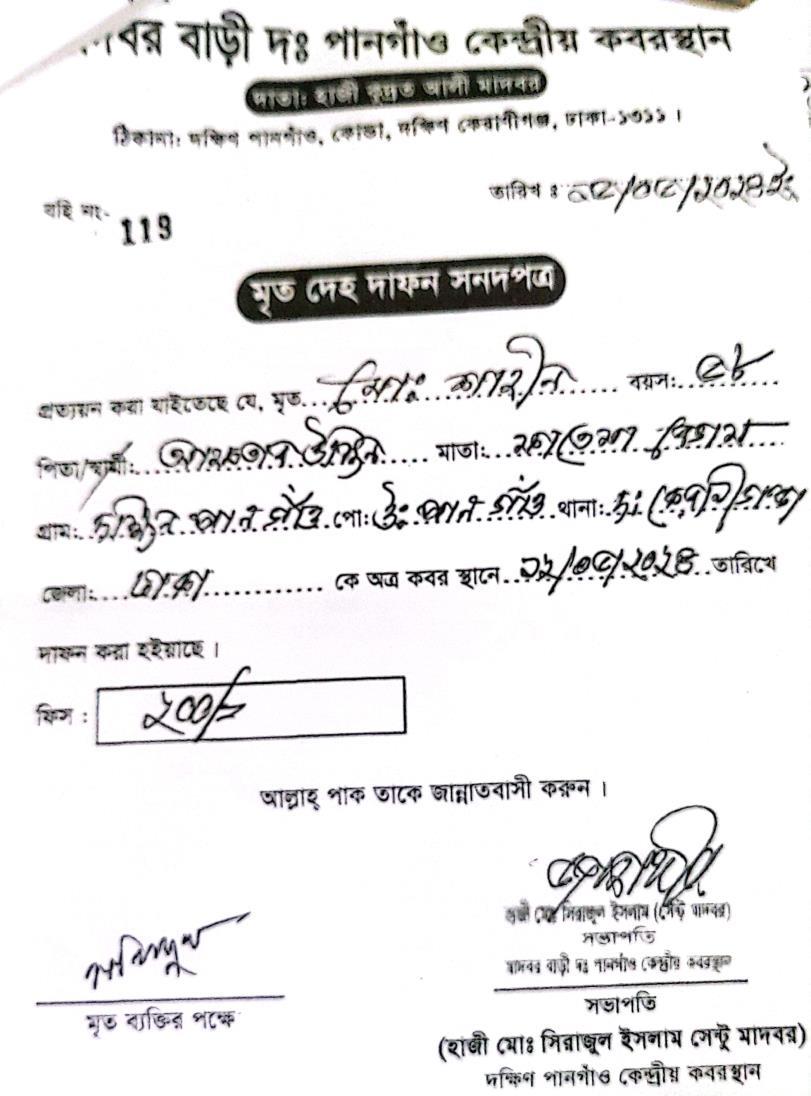 মাদবর বাড়ী দঃ পানগাঁও কেন্দ্রীয় কবরস্থান
দাতা: হাজী কুদরত আলী মাদবর
ঠিকানা: দক্ষিণ পানগাঁও, কোন্ডা, দক্ষিণ কেরাণীগঞ্জ, ঢাকা-১৩১১ ।
তারিখ ঃ /০৫/২০২৪ইং
বহি নং- 119
মৃত দেহ দাফন সনদপত্র
প্রত্যয়ন করা যাইতেছে যে, মৃত মোঃ বয়স: ৫৮
পিতা/স্বামী: উদ্দিন মাতা: বেগম
গ্রাম: দক্ষিন পান গাঁও পো: উঃ পান গাঁও থানা: দঃ কেরানীগঞ্জ
জেলা: ঢাকা কে অত্র কবর স্থানে /০৫/২০২৪ তারিখে
দাফন করা হইয়াছে ।
ফিস : ২০০/=
আল্লাহ্ পাক তাকে জান্নাতবাসী করুন ।
হাজী মোঃ সিরাজুল ইসলাম (সেন্টু মাদবর)
সভাপতি
মাদবর বাড়ী দঃ পানগাঁও কেন্দ্রীয় কবরস্থান
মৃত ব্যক্তির পক্ষে
সভাপতি
(হাজী মোঃ সিরাজুল ইসলাম সেন্টু মাদবর)
দক্ষিণ পানগাঁও কেন্দ্রীয় কবরস্থান